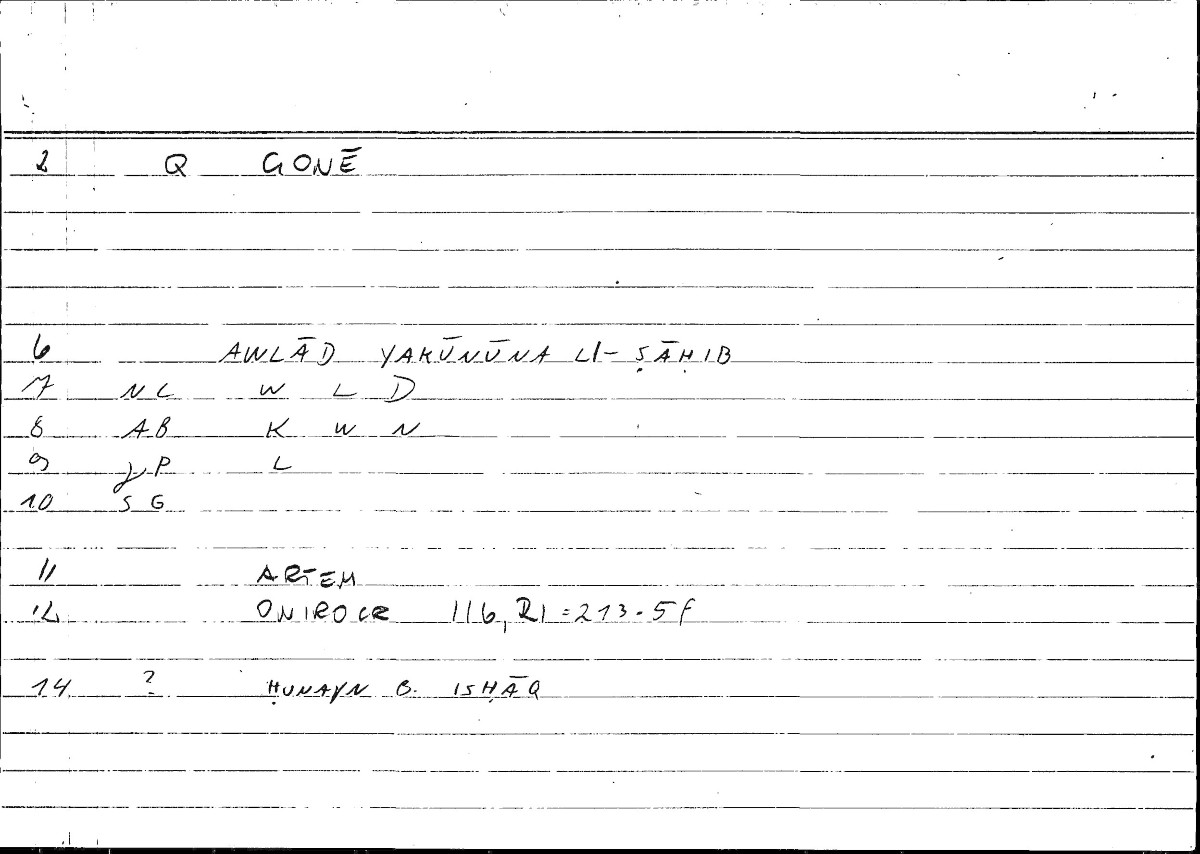 2 Q GONĒ
6 AWLĀD YAKŪNŪNA LI-ṢĀḤIB
7 NL W L D
8 AB K W N
9 P L
10 SG
11 ARTEM
12 ONIROCR 116, 21=213.5f
14 ? ḤUNAYN B. ISḤĀQ